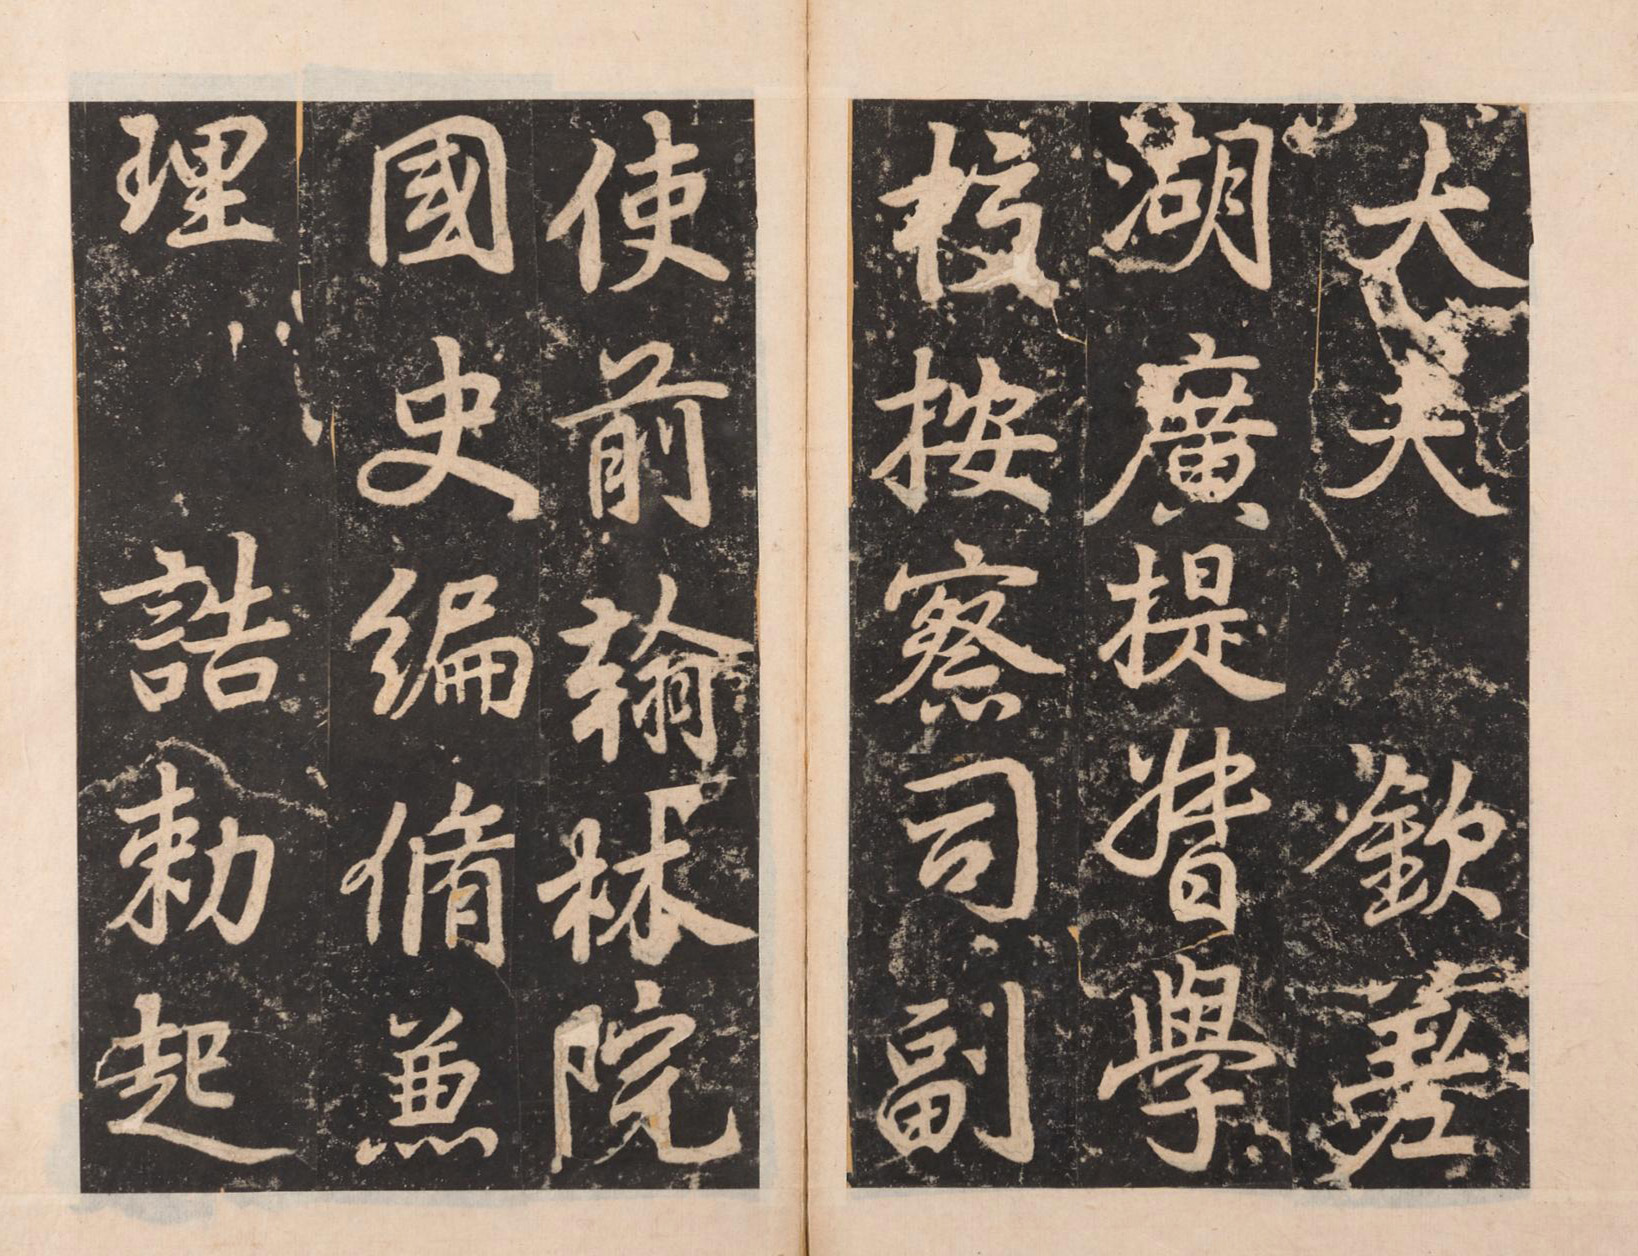 大夫 欽差
湖廣提督學
校按察司副
使前翰林院
國史編脩兼
理 誥勑起